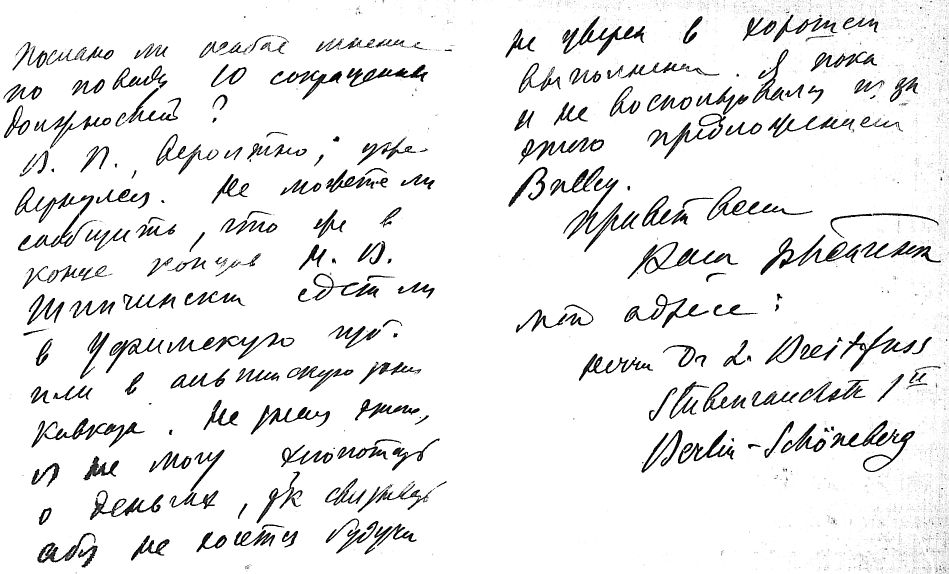 Послано ли особое мнение
по поводу 10 сокращении
должностей?
В. П., вероятно, уже
вернулся. Не можете ли
сообщить, что же в
конце концов М. В.
Шипчинский едет ли
в Уфимскую губ.
или в альпийскую зону
Кавказа. Не зная этого,
я не могу хлопотать
о деньгах, тк связывать
себя не хочется будучи
не уверен в хорошем
выполнении. Я пока
и не воспользовался из за
этого предложением
Bulley.
Привет всем
Ваш
Мой адрес:
Herrn Dr L. Dreitfuss
Stubenrauchstr 1 II
Berlin-Schöneberg